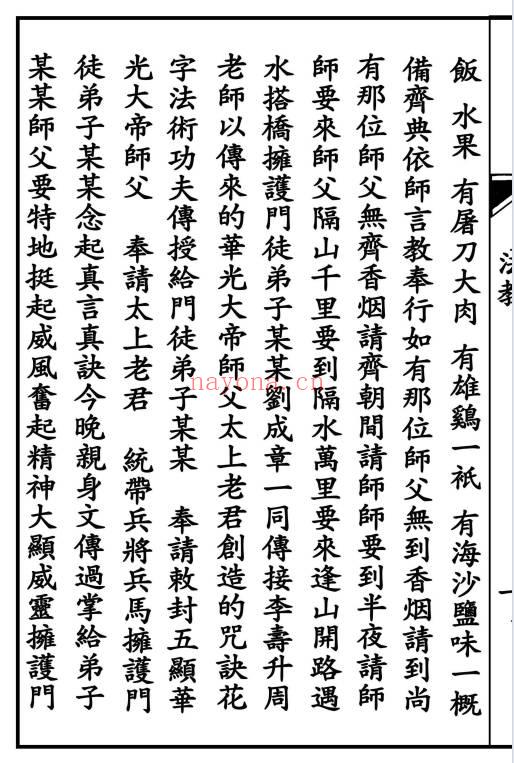 飯 水果 有屠刀大肉 有雄鷄一衹 有海沙鹽味一概
備齊典依師言教奉行如有那位師父無到香烟請到尚
有那位師父無齊香烟請齊朝間請師師要到半夜請師
師要來師父隔山千里要到隔水萬里要來逢山開路遇
水搭橋擁護門徒弟子某某劉成章一同傳接李壽升周
老師以傳來的華光大帝師父太上老君創造的咒訣花
字法術功夫傳授給門徒弟子某某 奉請敕封五顯華
光大帝師父 奉請太上老君 統帶兵將兵馬擁護門
徒弟子某某念起真言真訣今晚親身文傳過掌給弟子
某某師父要特地挺起威風奮起精神大顯威靈擁護門
nayona.cn